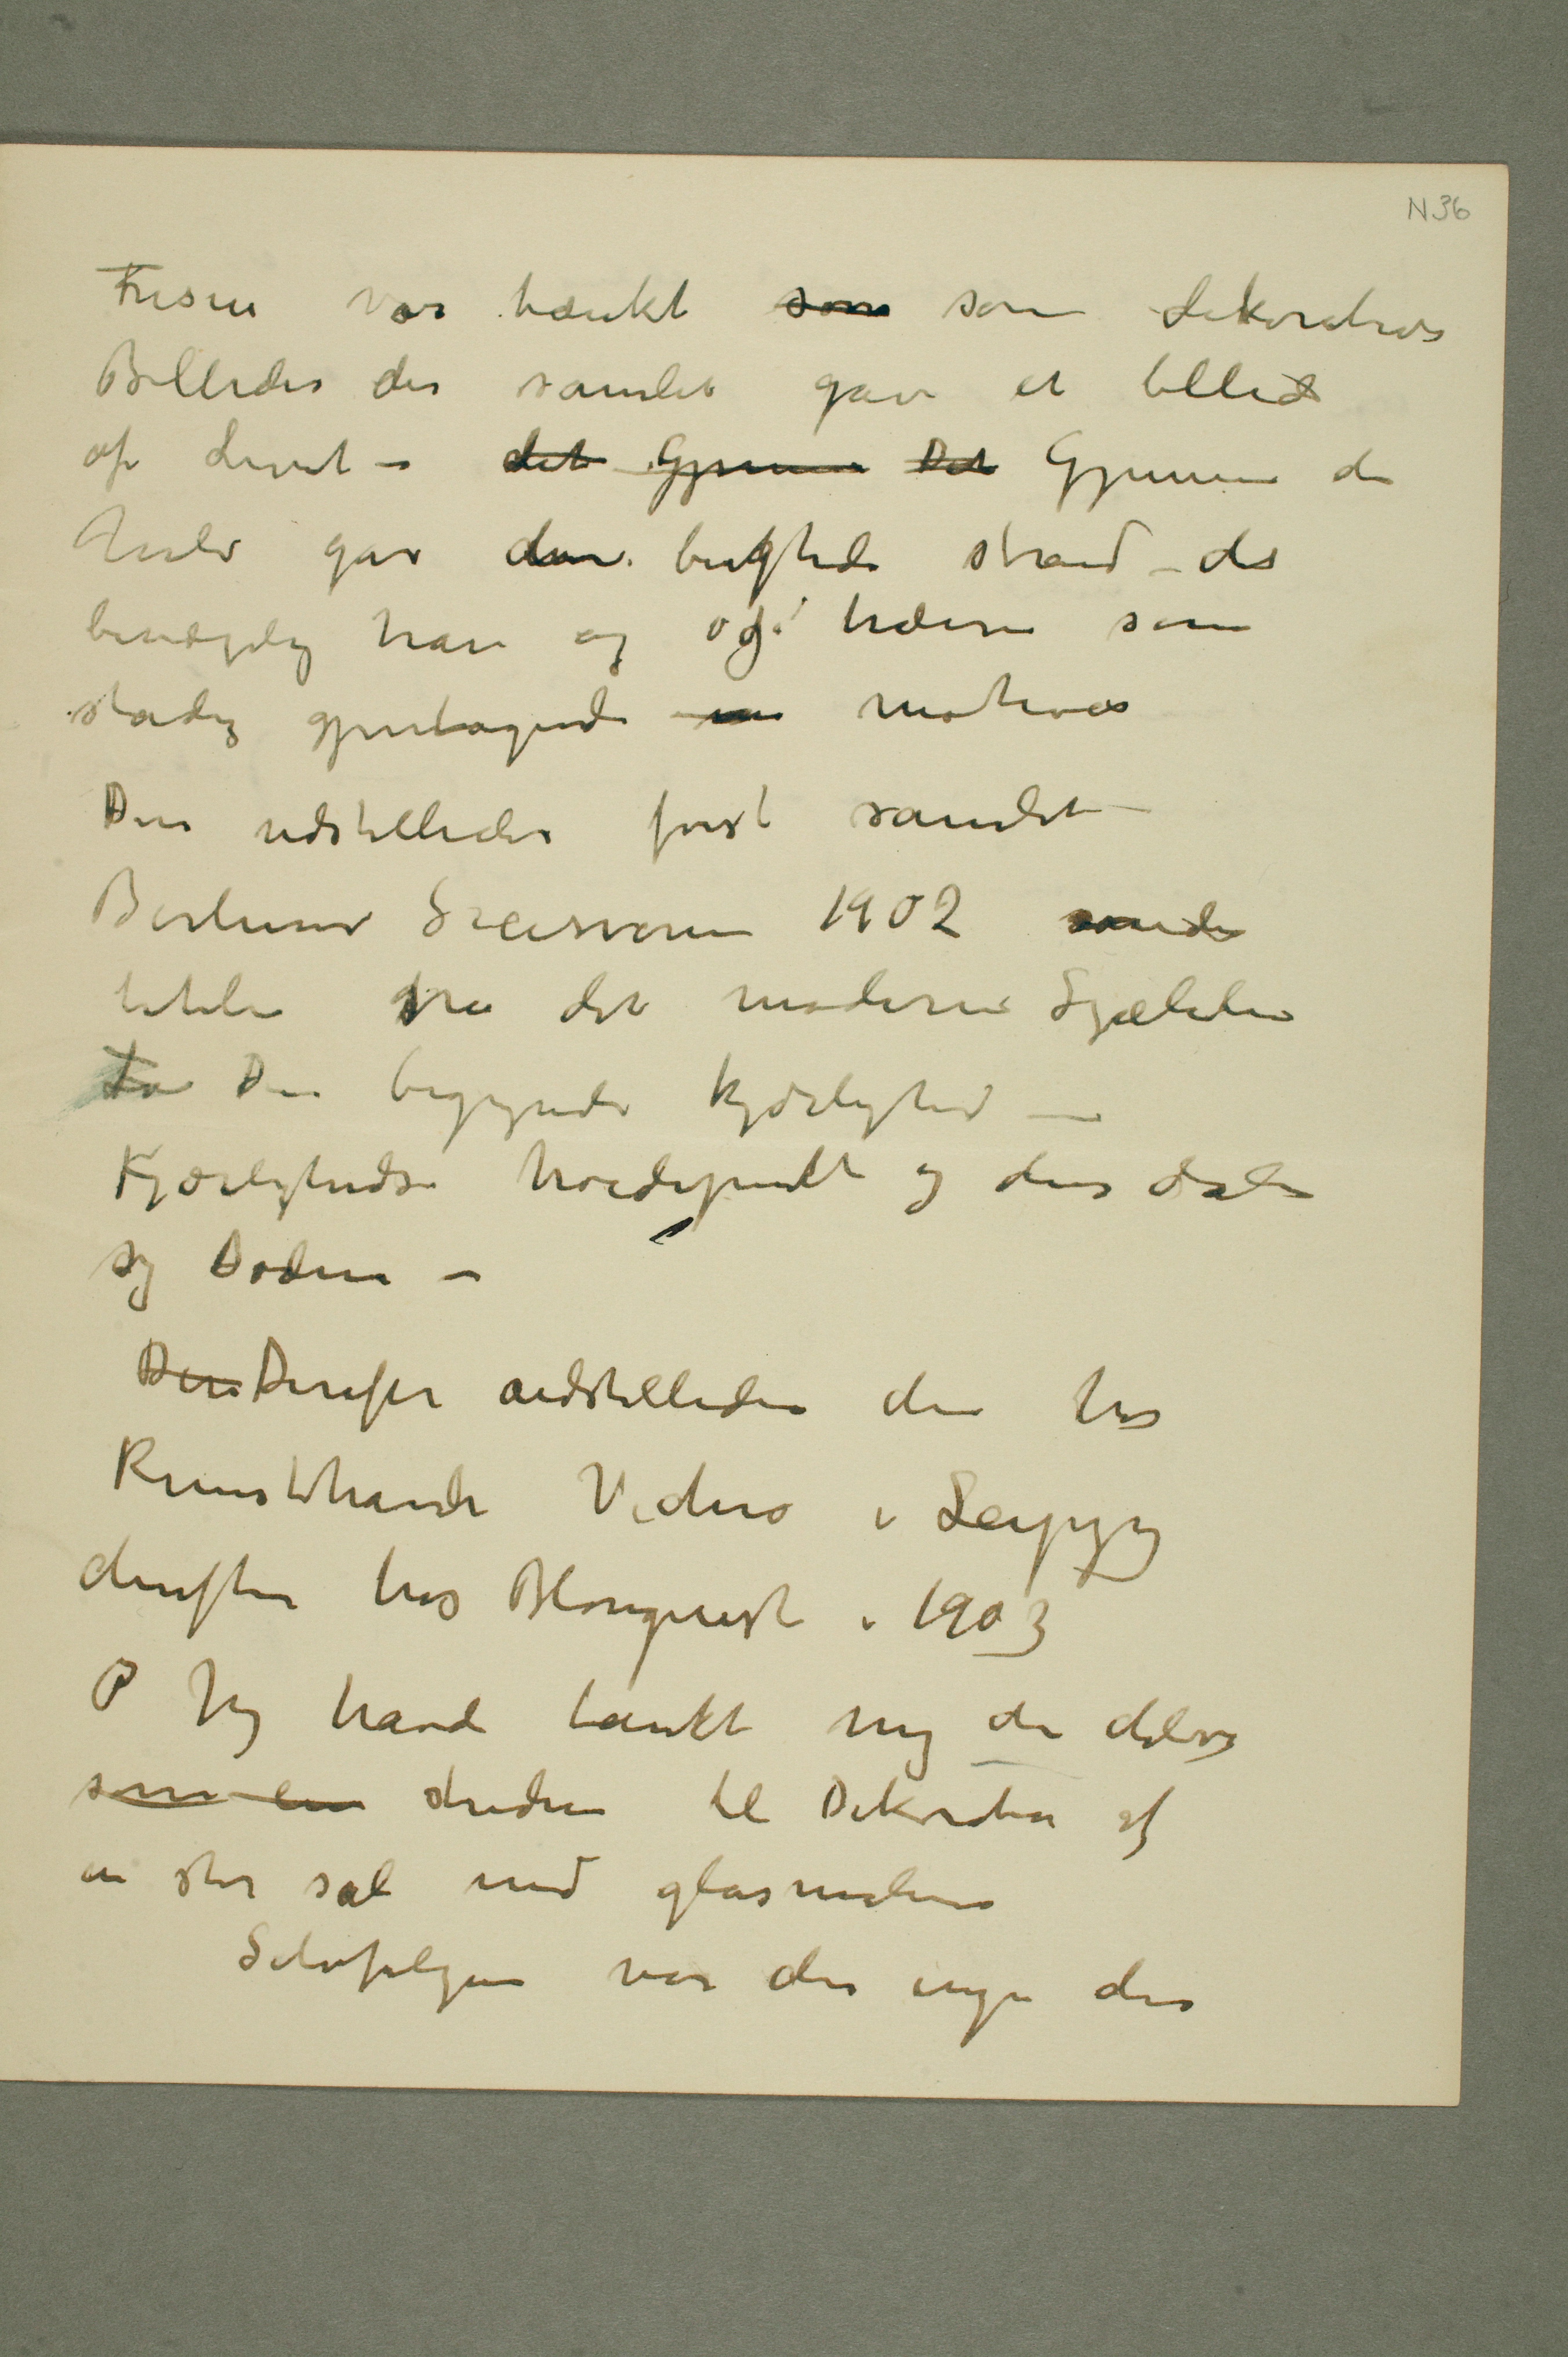 N 36
Frisen var tænkt som som dekorative
Billeder der samlet gav et billed
af Livet – det Gjennem Det Gjennem de
hele går den bugtede strand – det
bevægelig hav og også træerne som
stadig gjentagende motiver
Den udstilledes først samlet
Berliner Secession 1902
titelen fra det moderne Sjæleliv
Fra Den begynnende kjærlighed –
Kjærlighedens høidepunkt og dens dalen
og Døden –
Den Derefter udstilledes den hos
Kunsthandler i Leipzig
derefter hos Blomquist i 1903
P Jeg havde tænkt mig de deles
som en studien til Dekoration af
en stor sal med glasmalerier
Selvfølgen var der ingen der